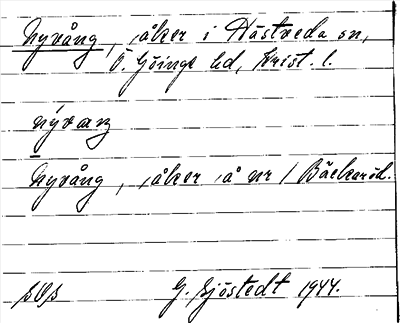 Nyvång, åker i Hästveda sn,
V. Göinge hd, Krist. l.
nývaŋ
Nyvång, åker å nr 1 Bäckaröd.
G. Sjöstedt 1944.